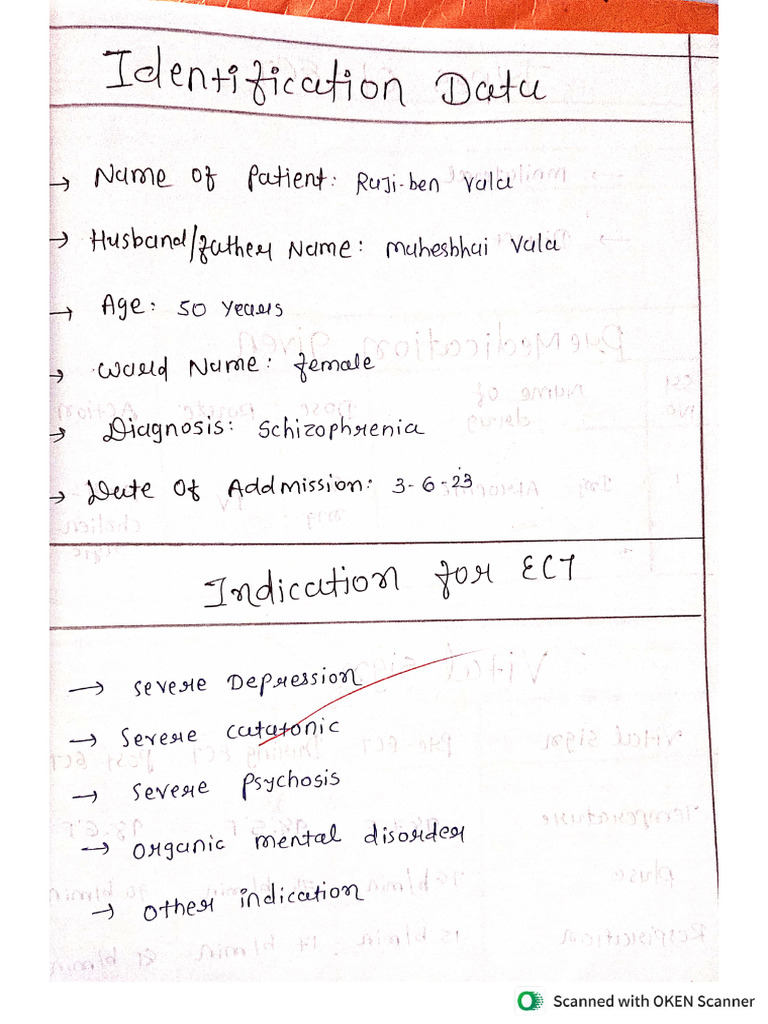 Identification Data
→ Name of Patient: Raji-ben Vala
→ Husband/father Name: Maheshbhai Vala
→ Age: 50 years
→ Ward Name: female
→ Diagnosis: Schizophrenia
→ Date Of Addmission: 3-6-23
Indication for ECT
→ Severe Depression
→ Severe Catatonic
→ Severe Psychosis
→ Organic mental disorder
→ Other indication
Scanned with OKEN Scanner